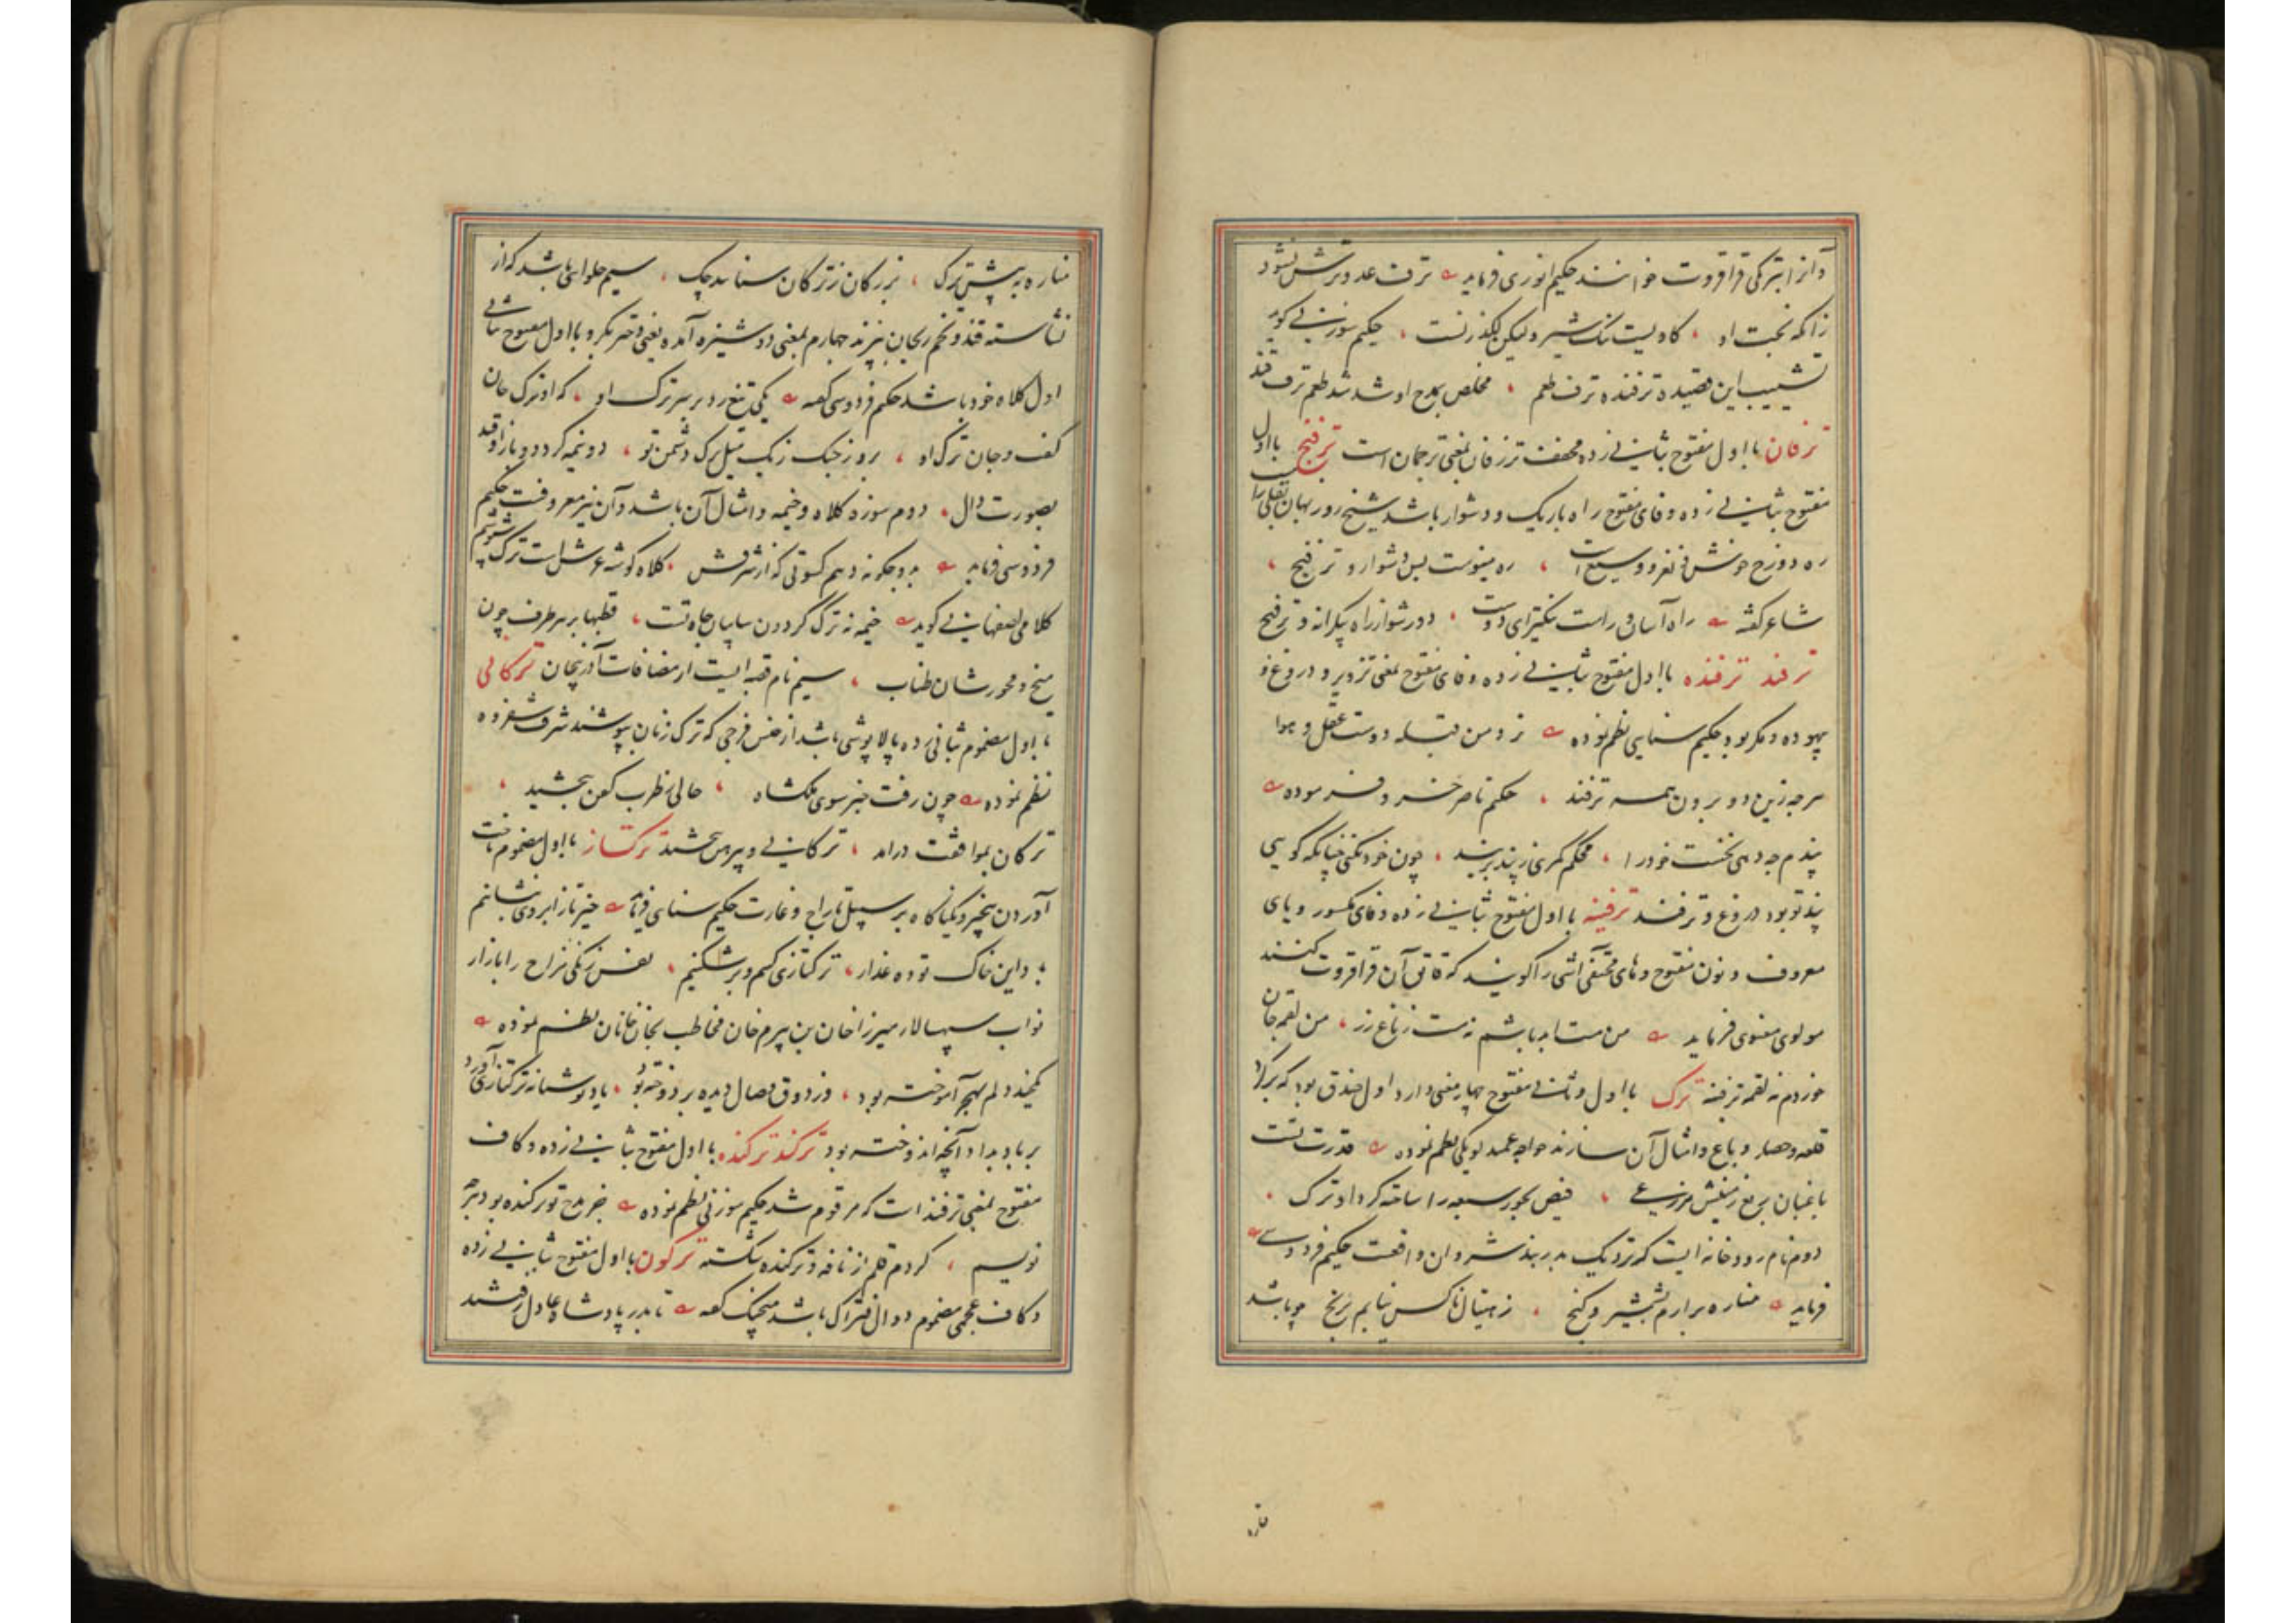 و آنرا بترکی قراقروت خوانند حکیم انوری فرماید ترف عدو ترش نشود
زانکه بخت او گاویست نیک شیر ولیکن لگدزنست حکیم سوزنی گوید
تشبیب این قصیده ترفنده ترف طعم مخلص بمدح او شد شد طعم ترف قند
ترفان با اول مفتوح بثانی زده مخفف ترزفان بمعنی ترجمان است ترفنج با اول
مفتوح بثانی زده و فای مفتوح راه باریک و دشوار باشد شیخ روزبهان بقلی راست
ره دوزخ خوش و نغز و وسیع است ره مینوست بس دشوار و ترفنج
شاعر گفته راه آسان و راست بگزین ای دوست دور شو از راه بیکرانه و ترفنج
ترفند ترفنده با اول مفتوح بثانی زده و فای مفتوح بمعنی تزویر و دروغ و
بیهوده و مکر بود حکیم سنایی نظم نموده نزد من قبله دوست عقل و هوا
هرچه زین دو برون همه ترفند حکیم ناصر خسرو فرموده
پندم چه دهی نخست خود را محکم کمری ز پند بربند چون خود نکنی چنانکه گویی
پند تو بود دروغ و ترفند ترفینه با اول مفتوح بثانی زده و فای مکسور و یای
معروف و نون مفتوح و های مختفی آشی را گویند که قاتق آن قراقروت کنند
مولوی معنوی فرماید من مست ابد باشم نه مست ز باغ رز من لقمه جان
خوردم نه لقمه ترفینه ترک با اول و ثانی مفتوح چهار معنی دارد اول خندق بود که بر گرد
قلعه و حصار و باغ و امثال آن سازند خواجه عمید لویکی نظم نموده قدرت تست
باغبان مرغزینش مزرعی فیض بحور سبعه را ساخته گرد او ترک
دوم نام رودخانه ایست که نزدیک بدربند شروان واقعست حکیم فردوسی
فرماید مناره برآرم بشمشیر و گنج ز هیتال تا کس نیابم برنج چو باشد
مناره
مناره به پیش ترک بزرگان ز ترکان ستانند چک سیم حلوایی باشد که از
نشاسته قند و تخم ریحان پزند چهارم بمعنی دوشیزه آمده یعنی دختر بکر و با اول مفتوح بثانی
اول کلاه خود باشد حکیم فردوسی گفته یکی تیغ زد بر سر ترک او که او ترک جان
گفت و جان ترک او بروز جنگ ز یک میل ترک دشمن تو دو نیمه گردد و باز اوفتد
بصورت دال دوم سوزه کلاه و خیمه و امثال آن باشد و آن نیز معروفست حکیم
فردوسی فرماید بدو چگونه دهم کسوتی که از شرفش کلاه گوشه عرش است ترک شوشم
کلامی اصفهانی گوید خیمه نه ترک گردون سایبان جاه تست قطبها بر سر طرف چون
میخ و محورشان طناب سیم نام قصبه ایست از مضافات آذربیجان ترکانی
با اول مضموم بثانی زده بالاپوشی باشد از جنس فرجی که ترک زنان پوشند شرف شفروه
نظم نموده چون رفت خبر سوی ملکشاه حالی ز طرب کفن ببخشید
ترکان بموافقت درآمد ترکانی و پیرهن ببخشید ترکتاز با اول مضموم تاخت
آوردن بیخبر و یکبارگاه بر سبیل تاراج و غارت حکیم سنایی فرماید خیز تا ز آب روی بنشانیم
باد این خاک توده غدار ترکتازی کنیم و برشکنیم نفس زنگی مزاج را بازار
نواب سپهسالار میرزا خان بن بیرم خان مخاطب بخان خانان نظم نموده
یکچند دلم بهجر آموخته بود وز ذوق وصال دیده بر دوخته بود یاد تو شبانه ترکتازی آورد
بر باد بداد آنچه اندوخته بود ترکند ترکنده با اول مفتوح بثانی زده و کاف
مفتوح بمعنی ترفند است که مرقوم شد حکیم سوزنی نظم نموده خبر مدح تو ترکنده بود هرچه
نویسم کردم قلم از نافه و ترکنده شکسته ترکون با اول مفتوح بثانی زده
و کاف عجمی مضموم دوال فتراک باشد منجیک گفته تا بدر پادشاه عادل رفتند